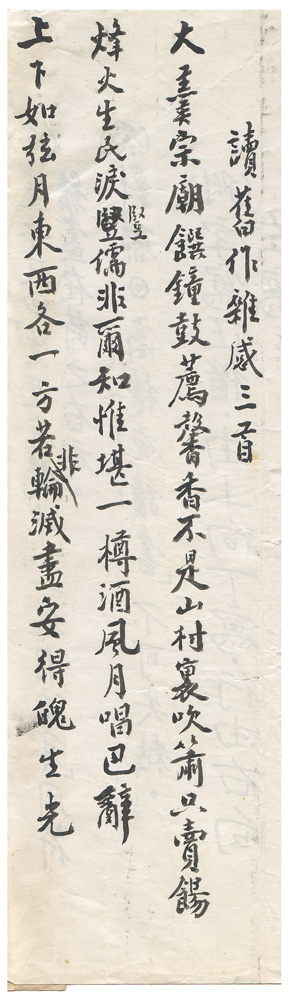 讀舊作雜感三首
大羹宗廟饌鐘鼓薦馨香不是山村裏吹簫只賣餳
豎
烽火生民淚豎儒非爾知惟堪一樽酒風月唱巴辭
非
上下如弦月東西各一方若輪滅盡安得魄生光